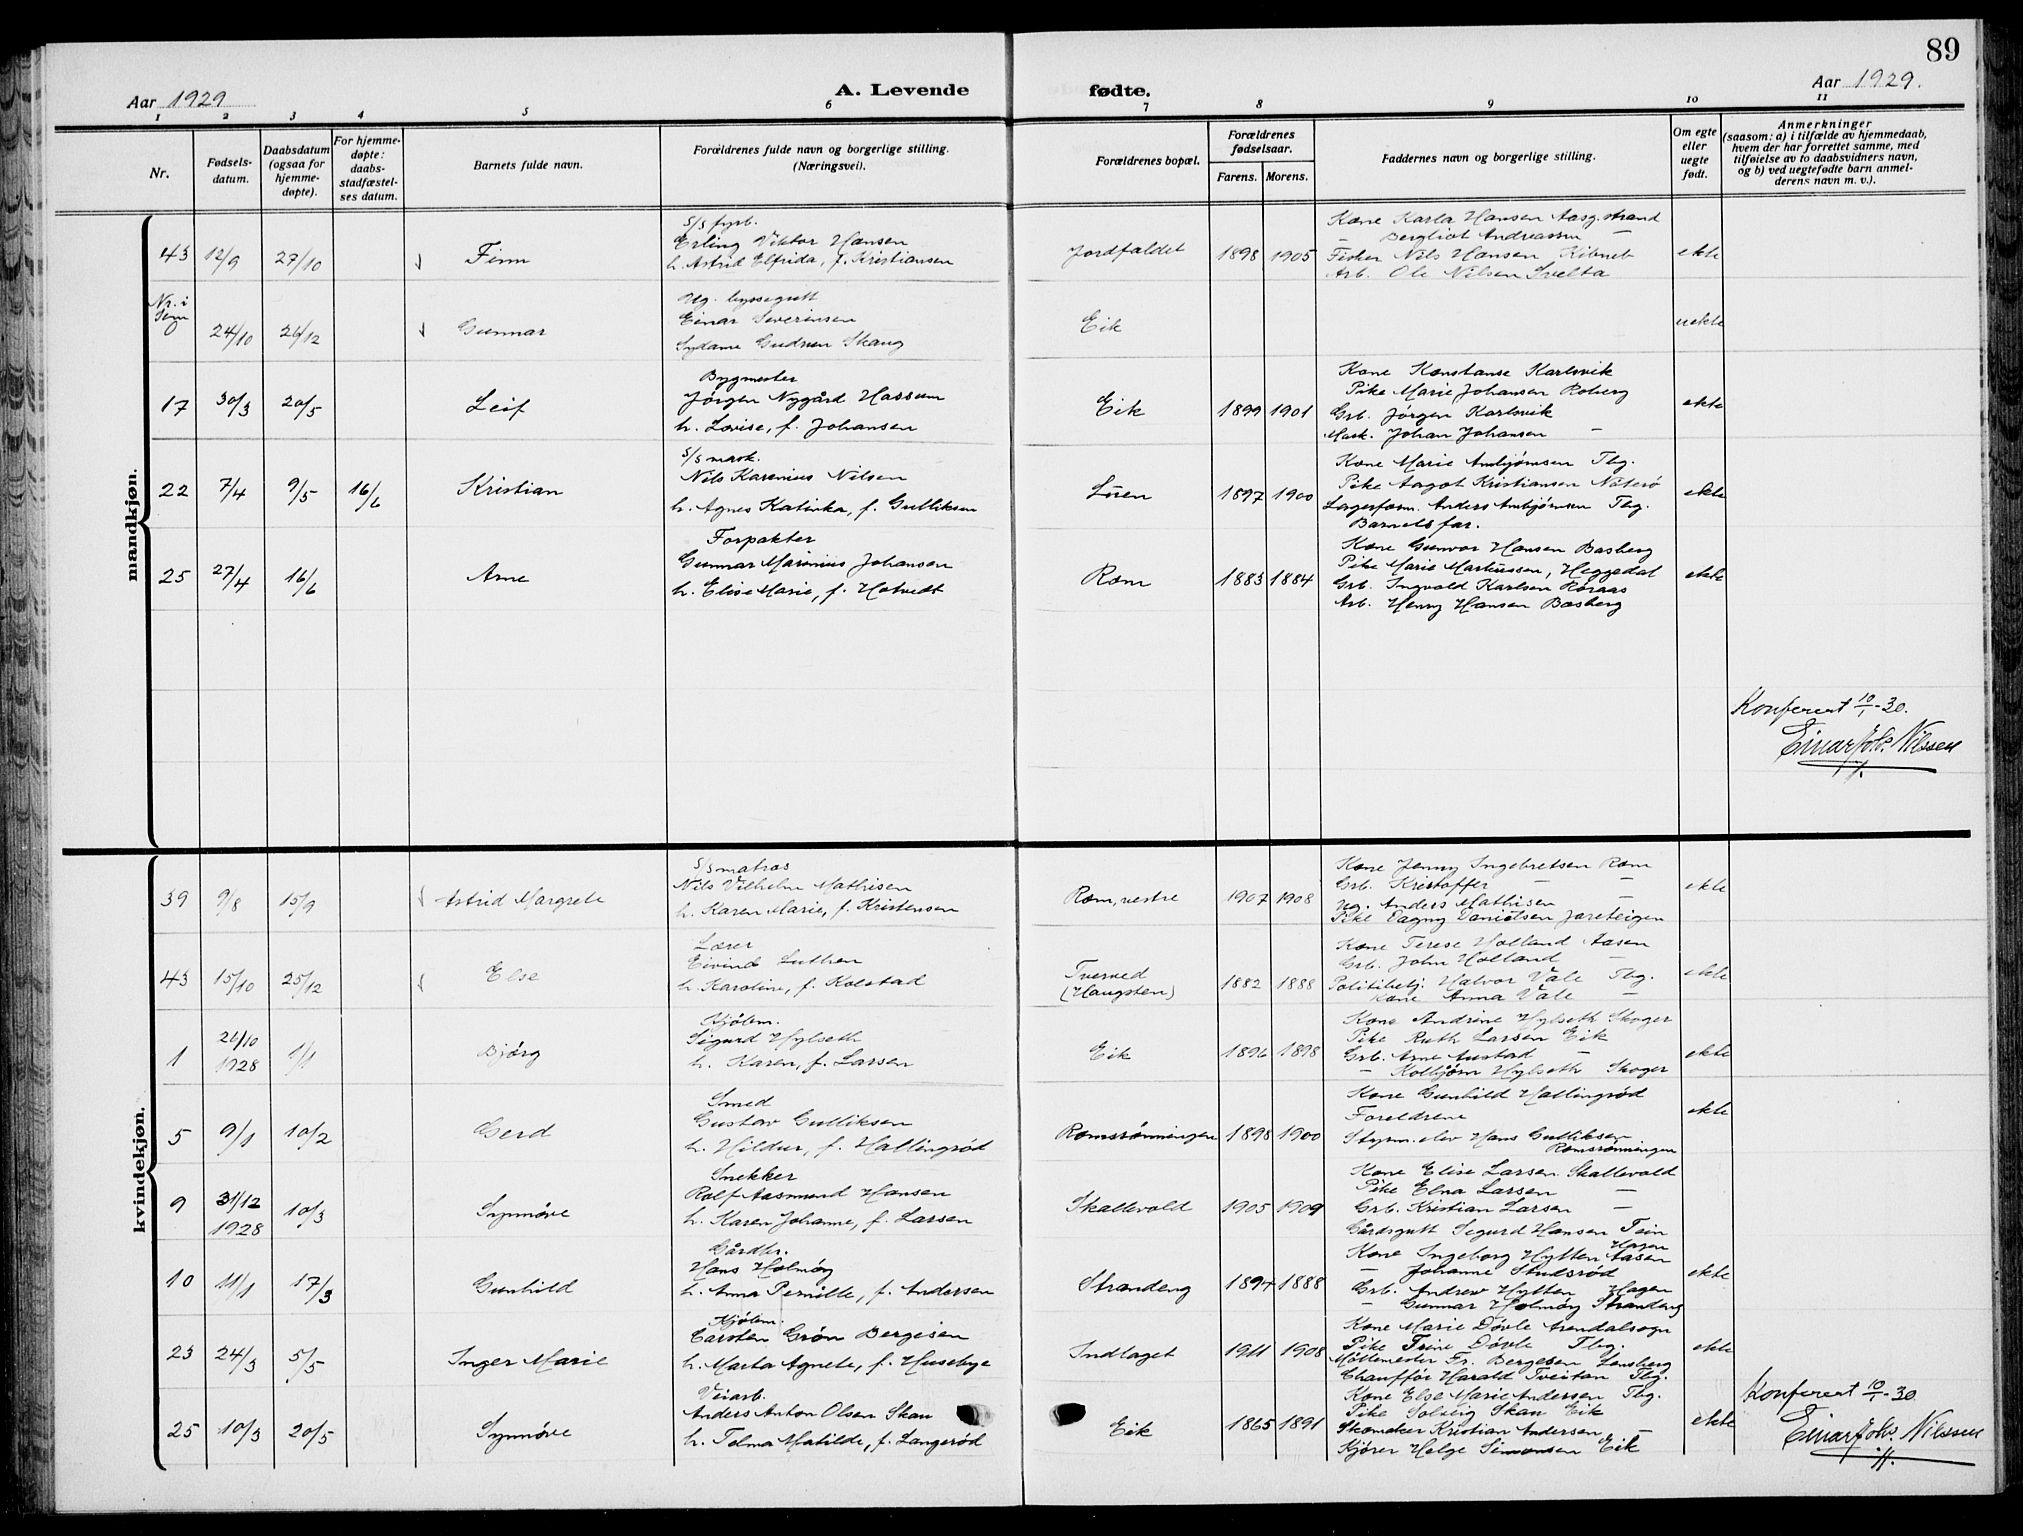 89
Aar 1929
A. Levende
fødte.
Aar 1929.
1 2 3 4 5 6 7 8 9 10 11
Nr.
Fødsels-
datum.
Daabsdatum
(ogsaa for
hjemme-
døpte).
For hjemme-
døpte:
daabs-
stadfæstel-
ses datum.
Barnets fulde navn.
Forældrenes fulde navn og borgerlige stilling.
(Næringsvei).
Forældrenes bopæl.
Forældrenes
fødselsaar.
Farens. Morens.
Faddernes navn og borgerlige stilling.
Om egte
eller
uegte
født.
Anmerkninger
(saasom: a) i tilfælde av hjemmedaab,
hvem der har forrettet samme, med
tilføielse av to daabsvidners navn,
og b) ved uegtefødte barn anmel-
derens navn m. v.).
mandkjøn.
43 12/9 27/10 Finn
s/s fyrb.
Erling Viktor Hansen
h. Astrid Elfrida, f. Kristiansen
Jordfaldet 1898 1905
Kone Karla Hansen Aasg.strand
— Bergliot Andreassen —
Fisker Nils Hansen
Arb. Ole Nilsen Svelta
ekte
Nr. i
Sem
24/10 26/12 Gunnar
Ug. byssegutt
Einar Severinsen
Sydame Gudrun Skaug
Eik
uekte
17 30/3 20/5 Leif
Bygmester
Jørgen Nygård Hassum
h. Lovise, f. Johansen
Eik 1899 1901
Kone Konstanse Karlsvik
Pike Marie Johansen Roberg
Grb. Jørgen Karlsvik
Mask. Johan Johansen —
ekte
22 7/4 9/5 16/6 Kristian
s/s mask.
Nils Karenius Nilsen
h. Agnes Katinka, f. Gulliksen
Løen 1897 1900
Kone Marie Ambjørnsen Tbg.
Pike Aagot Kristiansen Nøterø
Lagerform. Anders Ambjørnsen Tbg.
Barnets far.
ekte
25 27/4 16/6 Arne
Forpakter
Gunnar Marinius Johansen
h. Elise Marie, f. Hotvedt
Rom 1883 1884
Kone Gunvor Hansen Basberg
Pike Marie Martinssen, Heggedal
Grb. Ingvald Karlsen Røraas
Arb. Henry Hansen Basberg
ekte
Konferert 10/1-30.
Einar Johs. Nilssen
kvindekjøn.
39 9/8 15/9 Astrid Margrete
s/s matros
Nils Vilhelm Mathisen
h. Karen Marie, f. Kristensen
Rom, vestre 1907 1908
Kone Jenny Ingebretsen Rom
Grb. Kristoffer — —
Ug. Anders Mathisen —
Pike Dagny Danielsen Jareteigen
ekte
43 15/10 25/12 Else
Lærer
Eivind Luthen
h. Karoline, f. Kolstad
Tverved
(Haugsten)
1882 1888
Kone Terese Holland Aasen
Grb. John Holland —
Politibetj. Halvor Vale Tbg.
Kone Anna Vale —
ekte
1 26/10 1928 1/1 Bjørg
Kjølem.
Sigurd Hylseth
h. Karen, f. Larsen
Eik 1896 1898
Kone Andrine Hylseth Skoger
Pike Ruth Larsen Eik
Grb. Arne Austad —
— Kolbjørn Hylseth Skoger
ekte
5 9/1 10/2 Gerd
Smed
Gustav Gulliksen
h. Hildur, f. Hallingrød
Romsrønningen 1898 1900
Kone Gunhild Hallingrød
Foreldrene
Styrm. elev Hans Gulliksen
Romsrønningen
ekte
9 31/12 1928 10/3 Synnøve
Snekker
Rolf Aasmund Hansen
h. Karen Johanne, f. Larsen
Skallevold 1905 1909
Kone Elise Larsen Skallevold
Pike Elna Larsen —
Grb. Kristian Larsen —
Gårdsgutt Sigurd Hansen Tein
10 11/1 17/3 Gunhild
Gårdbr.
Hans Holmøy
h. Anna Pernille, f. Andersen
Strandeng 1894 1888
Hagen
Kone Ingeborg Hytten Aasen
— Johanne Studsrød
Grb. Andrew Hytten Hagen
— Gunnar Holmøy Strandeng
ekte
23 24/3 5/5 Inger Marie
Kjølem.
Carsten Grøn Bergesen
h. Marta Agnete, f. Husebye
Indlaget 1911 1908
Kone Marie Døvle Arendalsogn
Pike Trine Døvle Tbg.
Møllemester Fr. Bergesen Lensberg
Chauffør Harald Tveitan Tbg.
ekte
25 10/3 20/5 Synnøve
Veiarb.
Anders Anton Olsen Skau
h. Telma Matilde, f. Langerød
Eik 1865 1891
Kone Else Marie Andersen Tbg.
Pike Solveig Skau Eik
Skomaker Kristian Andersen —
Kjører Helge Simonsen Eik
ekte
Konferert 10/1-30
Einar Johs. Nilssen